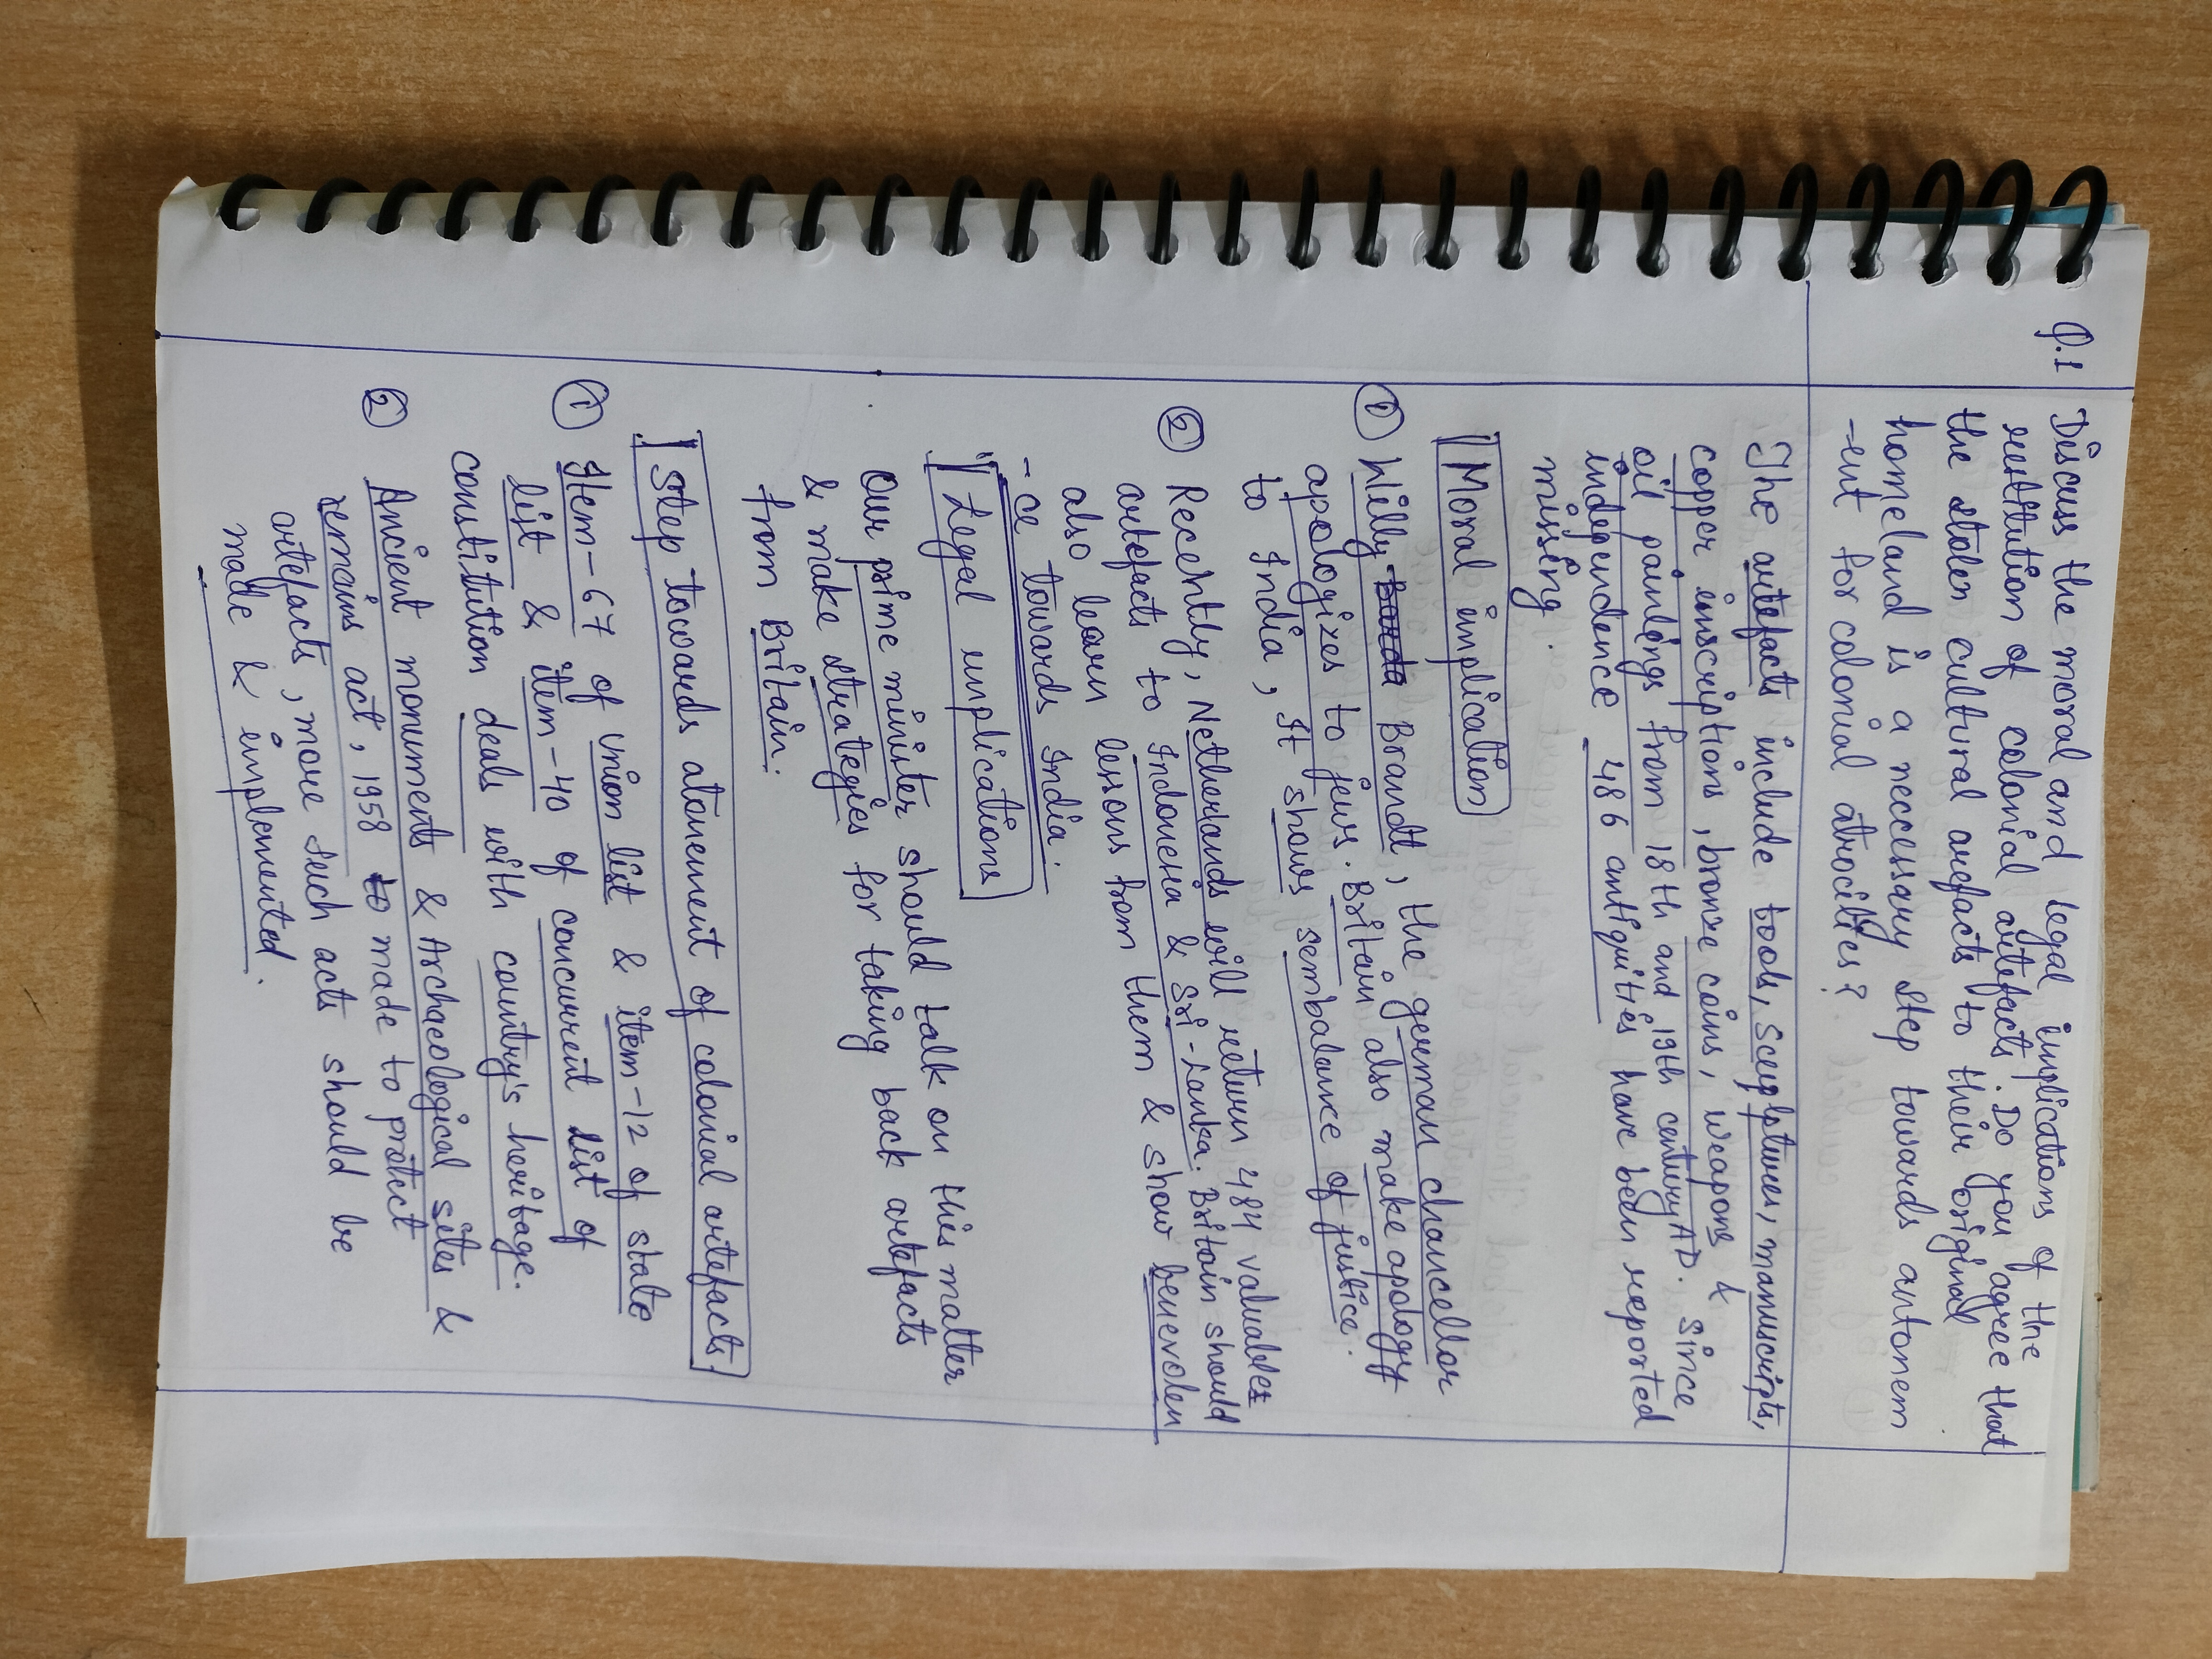 Q.1 Discuss the moral and legal implications of the
restitution of colonial artefacts. Do you agree that
the stolen cultural arefacts to their original
homeland is a necessary step towards antonem
-ent for colonial atrocities?
The artefacts include tools, sculptures, manuscripts,
copper inscriptions, bronze coins, weapons &
oil paintings from 18th and 19th century AD. Since
independence 486 antiquities have been reported
missing.
Moral implication
① Willy Brandt, the german chancellor
apologizes to jews. Britain also make apology
to India, It shows sembalance of justice.
② Recently, Netherlands will return 484 valuables
artefacts to Indonesia & Sri-Lanka. Britain should
also learn lessons from them & show benevolen
-ce towards India.
Legal implications
Our prime minister should talk on this matter
& make strategies for taking back artefacts
from Britain.
Step towards atonement of colonial artefacts
① Item-67 of union list & item-12 of state
list & item-40 of concurrent list of
constitution deals with country's heritage.
② Ancient monuments & Archaeological sites &
remains act, 1958 to made to protect
artefacts, more such acts should be
made & implemented.